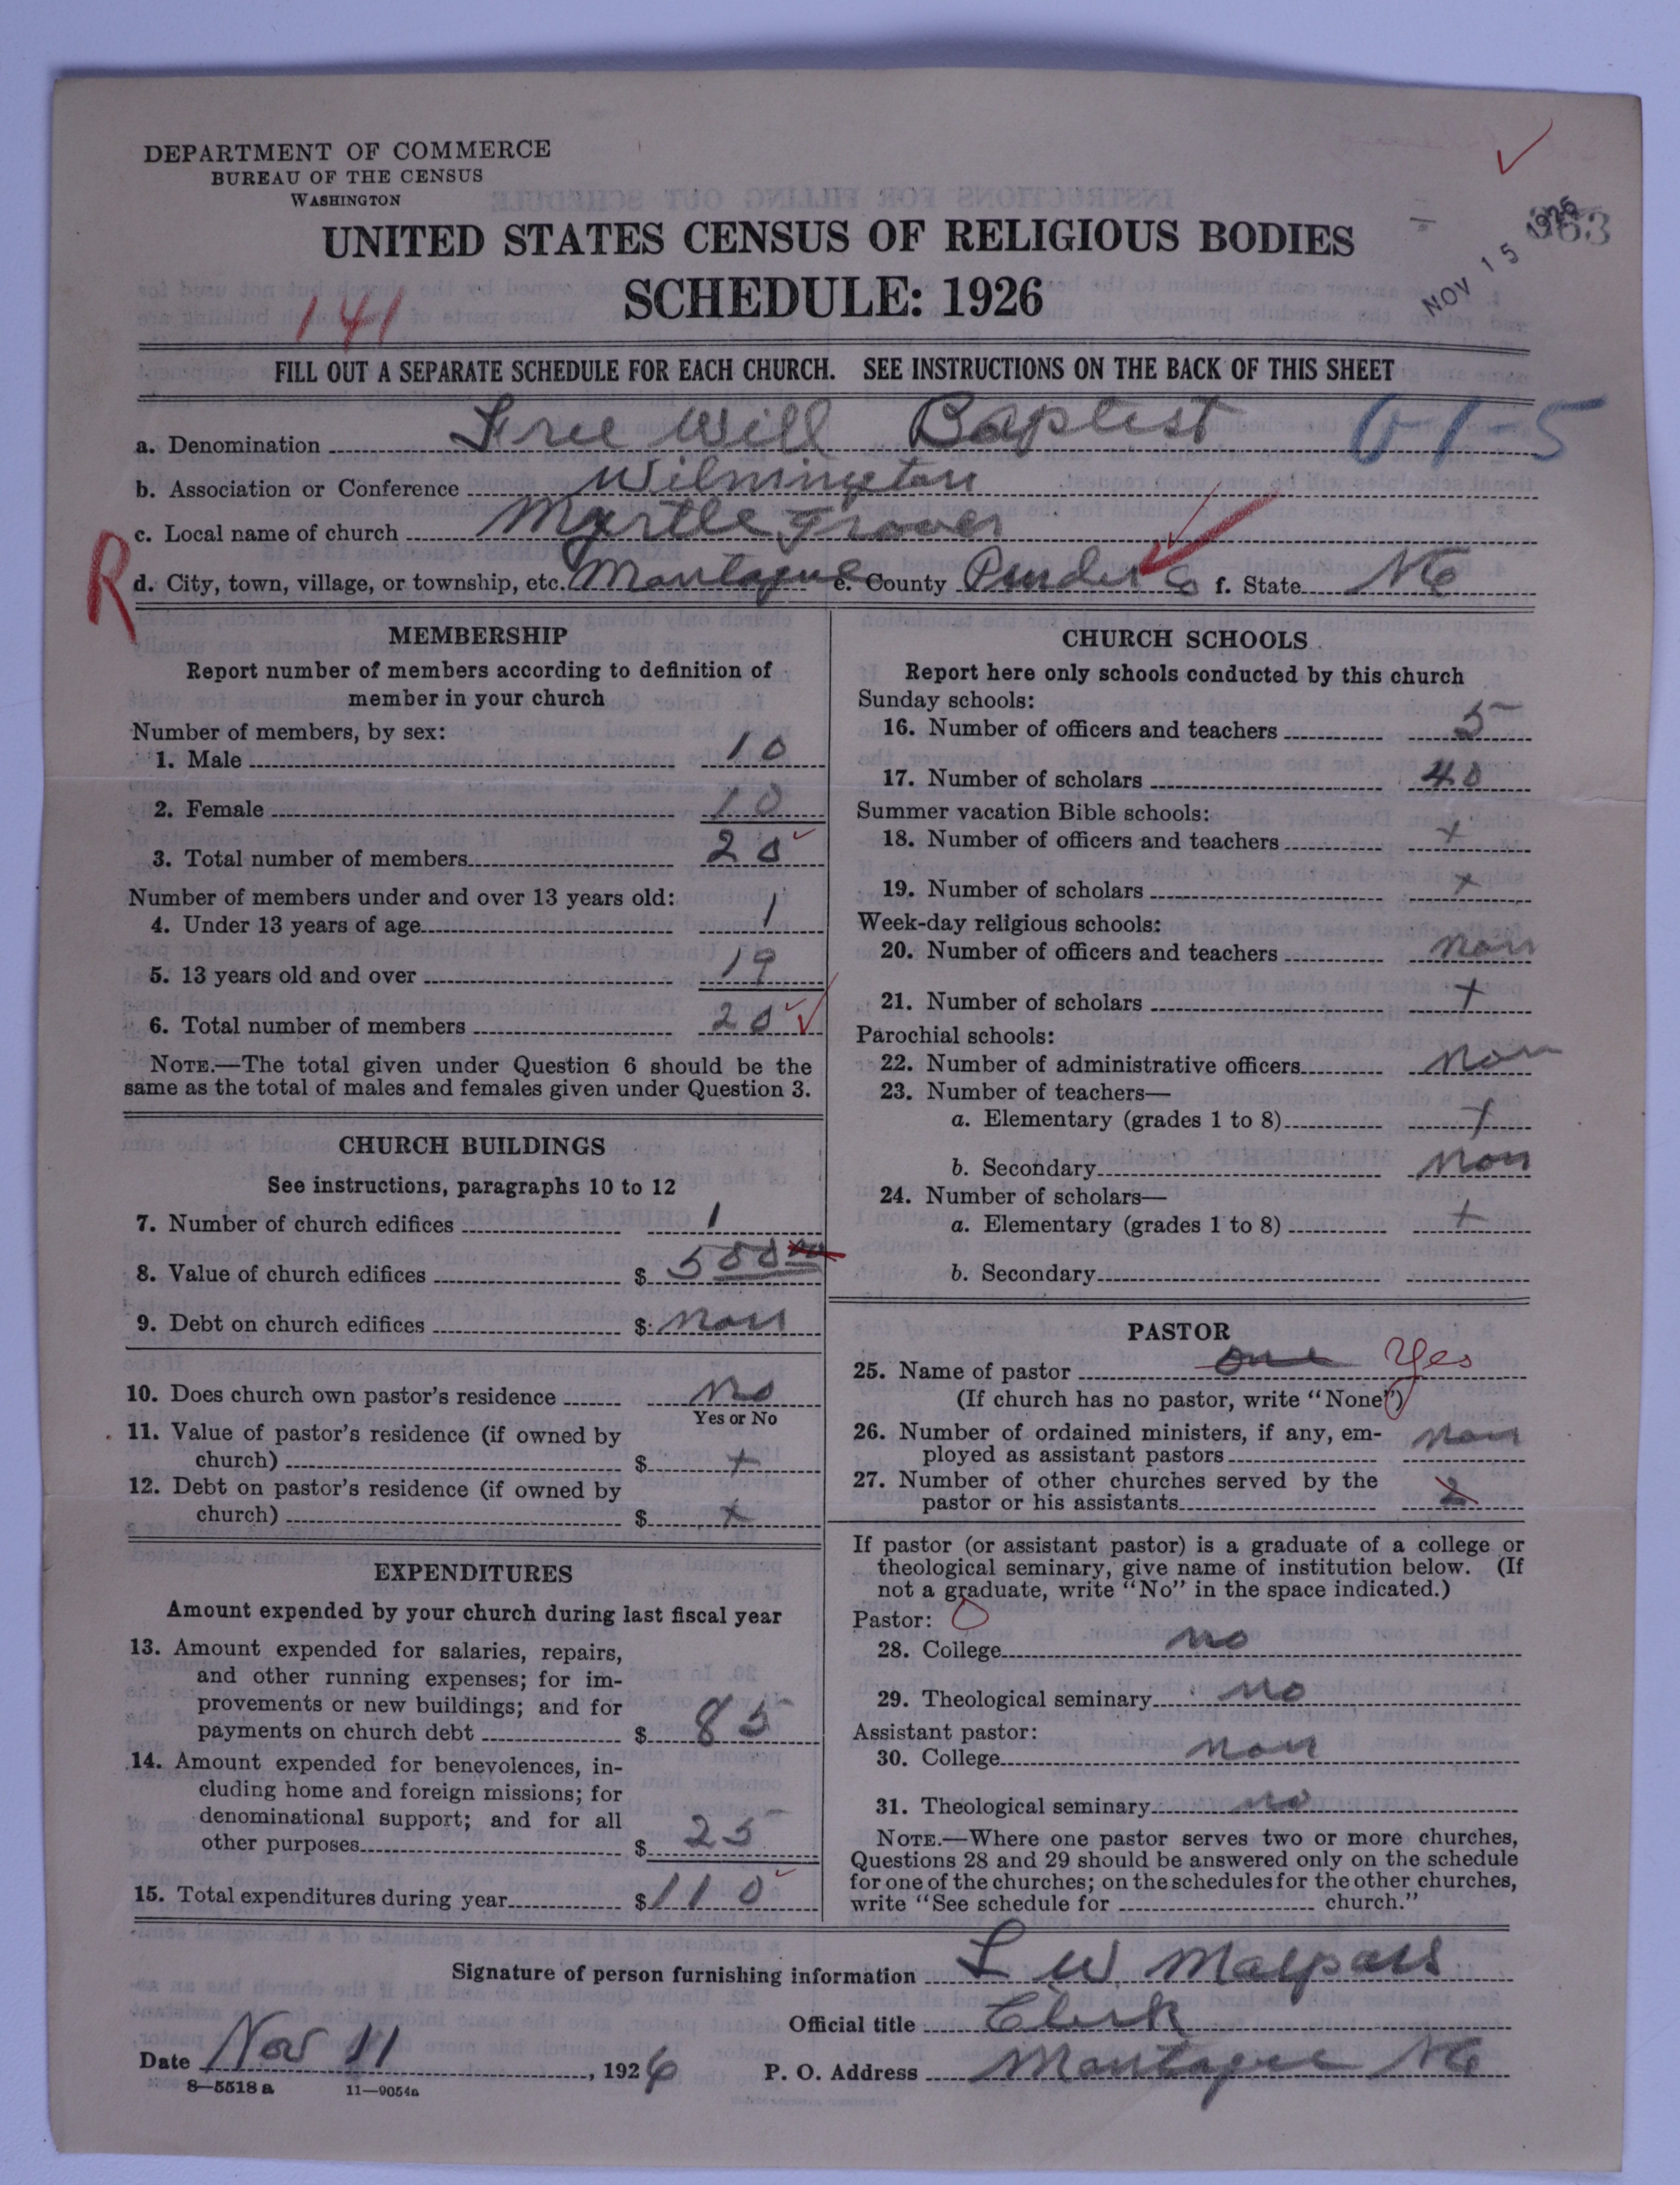 DEPARTMENT OF COMMERCE
BUREAU OF THE CENSUS
WASHINGTON
UNITED STATES CENSUS OF RELIGIOUS BODIES
SCHEDULE: 1926
NOV 15 1926
141
FILL OUT A SEPARATE SCHEDULE FOR EACH CHURCH. SEE INSTRUCTIONS ON THE BACK OF THIS SHEET
a. Denomination Free Will Baptist 6-1-5
b. Association or Conference Wilmington
c. Local name of church Myrtle Grover
R
d. City, town, village, or township, etc. Montague e. County Pender Co f. State NC
MEMBERSHIP
Report number of members according to definition of
member in your church
Number of members, by sex:
1. Male 10
2. Female 10
3. Total number of members 20
Number of members under and over 13 years old:
4. Under 13 years of age 1
5. 13 years old and over 19
6. Total number of members 20
NOTE.—The total given under Question 6 should be the
same as the total of males and females given under Question 3.
CHURCH BUILDINGS
See instructions, paragraphs 10 to 12
7. Number of church edifices 1
8. Value of church edifices $ 500 00
9. Debt on church edifices $ non
10. Does church own pastor's residence no
Yes or No
11. Value of pastor's residence (if owned by
church) $ +
12. Debt on pastor's residence (if owned by
church) $ +
EXPENDITURES
Amount expended by your church during last fiscal year
13. Amount expended for salaries, repairs,
and other running expenses; for im-
provements or new buildings; and for
payments on church debt $ 85
14. Amount expended for benevolences, in-
cluding home and foreign missions; for
denominational support; and for all
other purposes $ 25
15. Total expenditures during year $ 110
CHURCH SCHOOLS
Report here only schools conducted by this church
Sunday schools:
16. Number of officers and teachers 5
17. Number of scholars 40
Summer vacation Bible schools:
18. Number of officers and teachers +
19. Number of scholars +
Week-day religious schools:
20. Number of officers and teachers non
21. Number of scholars +
Parochial schools:
22. Number of administrative officers non
23. Number of teachers—
a. Elementary (grades 1 to 8) +
b. Secondary non
24. Number of scholars—
a. Elementary (grades 1 to 8) +
b. Secondary
PASTOR
25. Name of pastor one Yes
(If church has no pastor, write "None")
26. Number of ordained ministers, if any, em-
ployed as assistant pastors non
27. Number of other churches served by the
pastor or his assistants 2
If pastor (or assistant pastor) is a graduate of a college or
theological seminary, give name of institution below. (If
not a graduate, write "No" in the space indicated.)
Pastor:
28. College no
29. Theological seminary no
Assistant pastor:
30. College non
31. Theological seminary no
NOTE.—Where one pastor serves two or more churches,
Questions 28 and 29 should be answered only on the schedule
for one of the churches; on the schedules for the other churches,
write "See schedule for church."
Signature of person furnishing information L W Malpass
Official title Clerk
Date Nov 11, 1926 P. O. Address Montague NC
8-5518 a 11-9054a